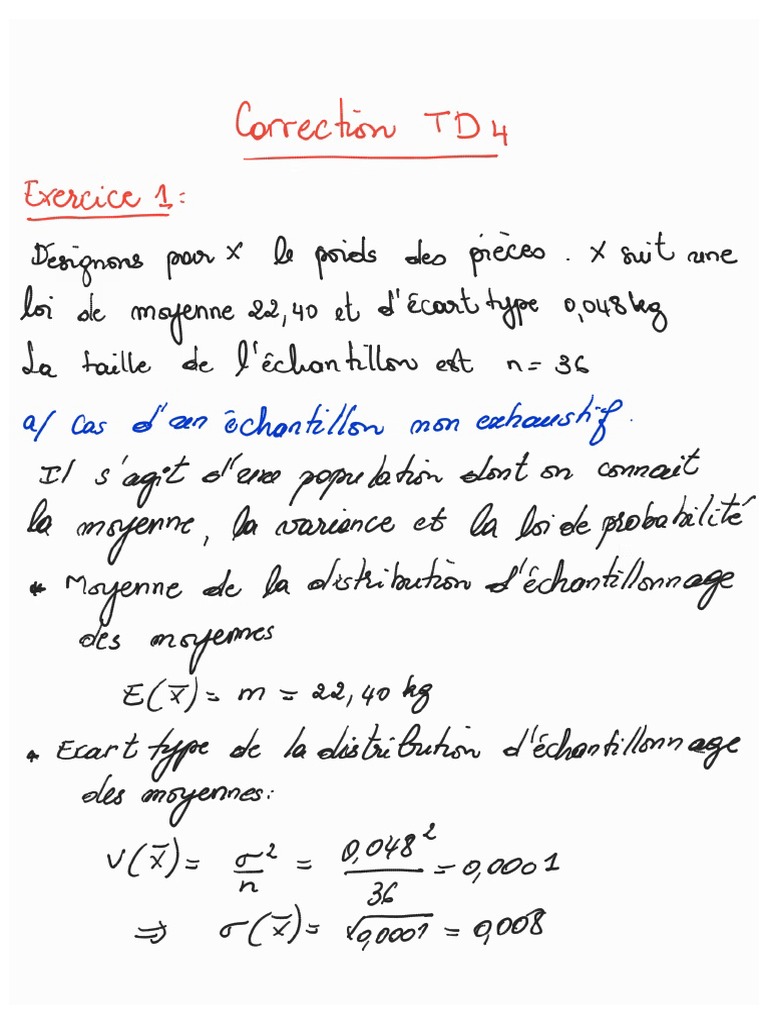 Correction TD4
Exercice 1:
Designons pour X le poids des pièces. X suit une
loi de moyenne 22,40 et d'écart type 0,048 kg
La taille de l'échantillon est n = 36
a/ Cas d'un échantillon non exhaustif.
Il s'agit d'une population dont on connait
la moyenne, la variance et la loi de probabilité
* Moyenne de la distribution d'échantillonnage
des moyennes
E(x̄) = m = 22,40 kg
* Ecart type de la distribution d'échantillonnage
des moyennes:
V(x̄) = σ²/n = 0,048²/36 = 0,0001
⇒ σ(x̄) = √0,0001 = 0,008